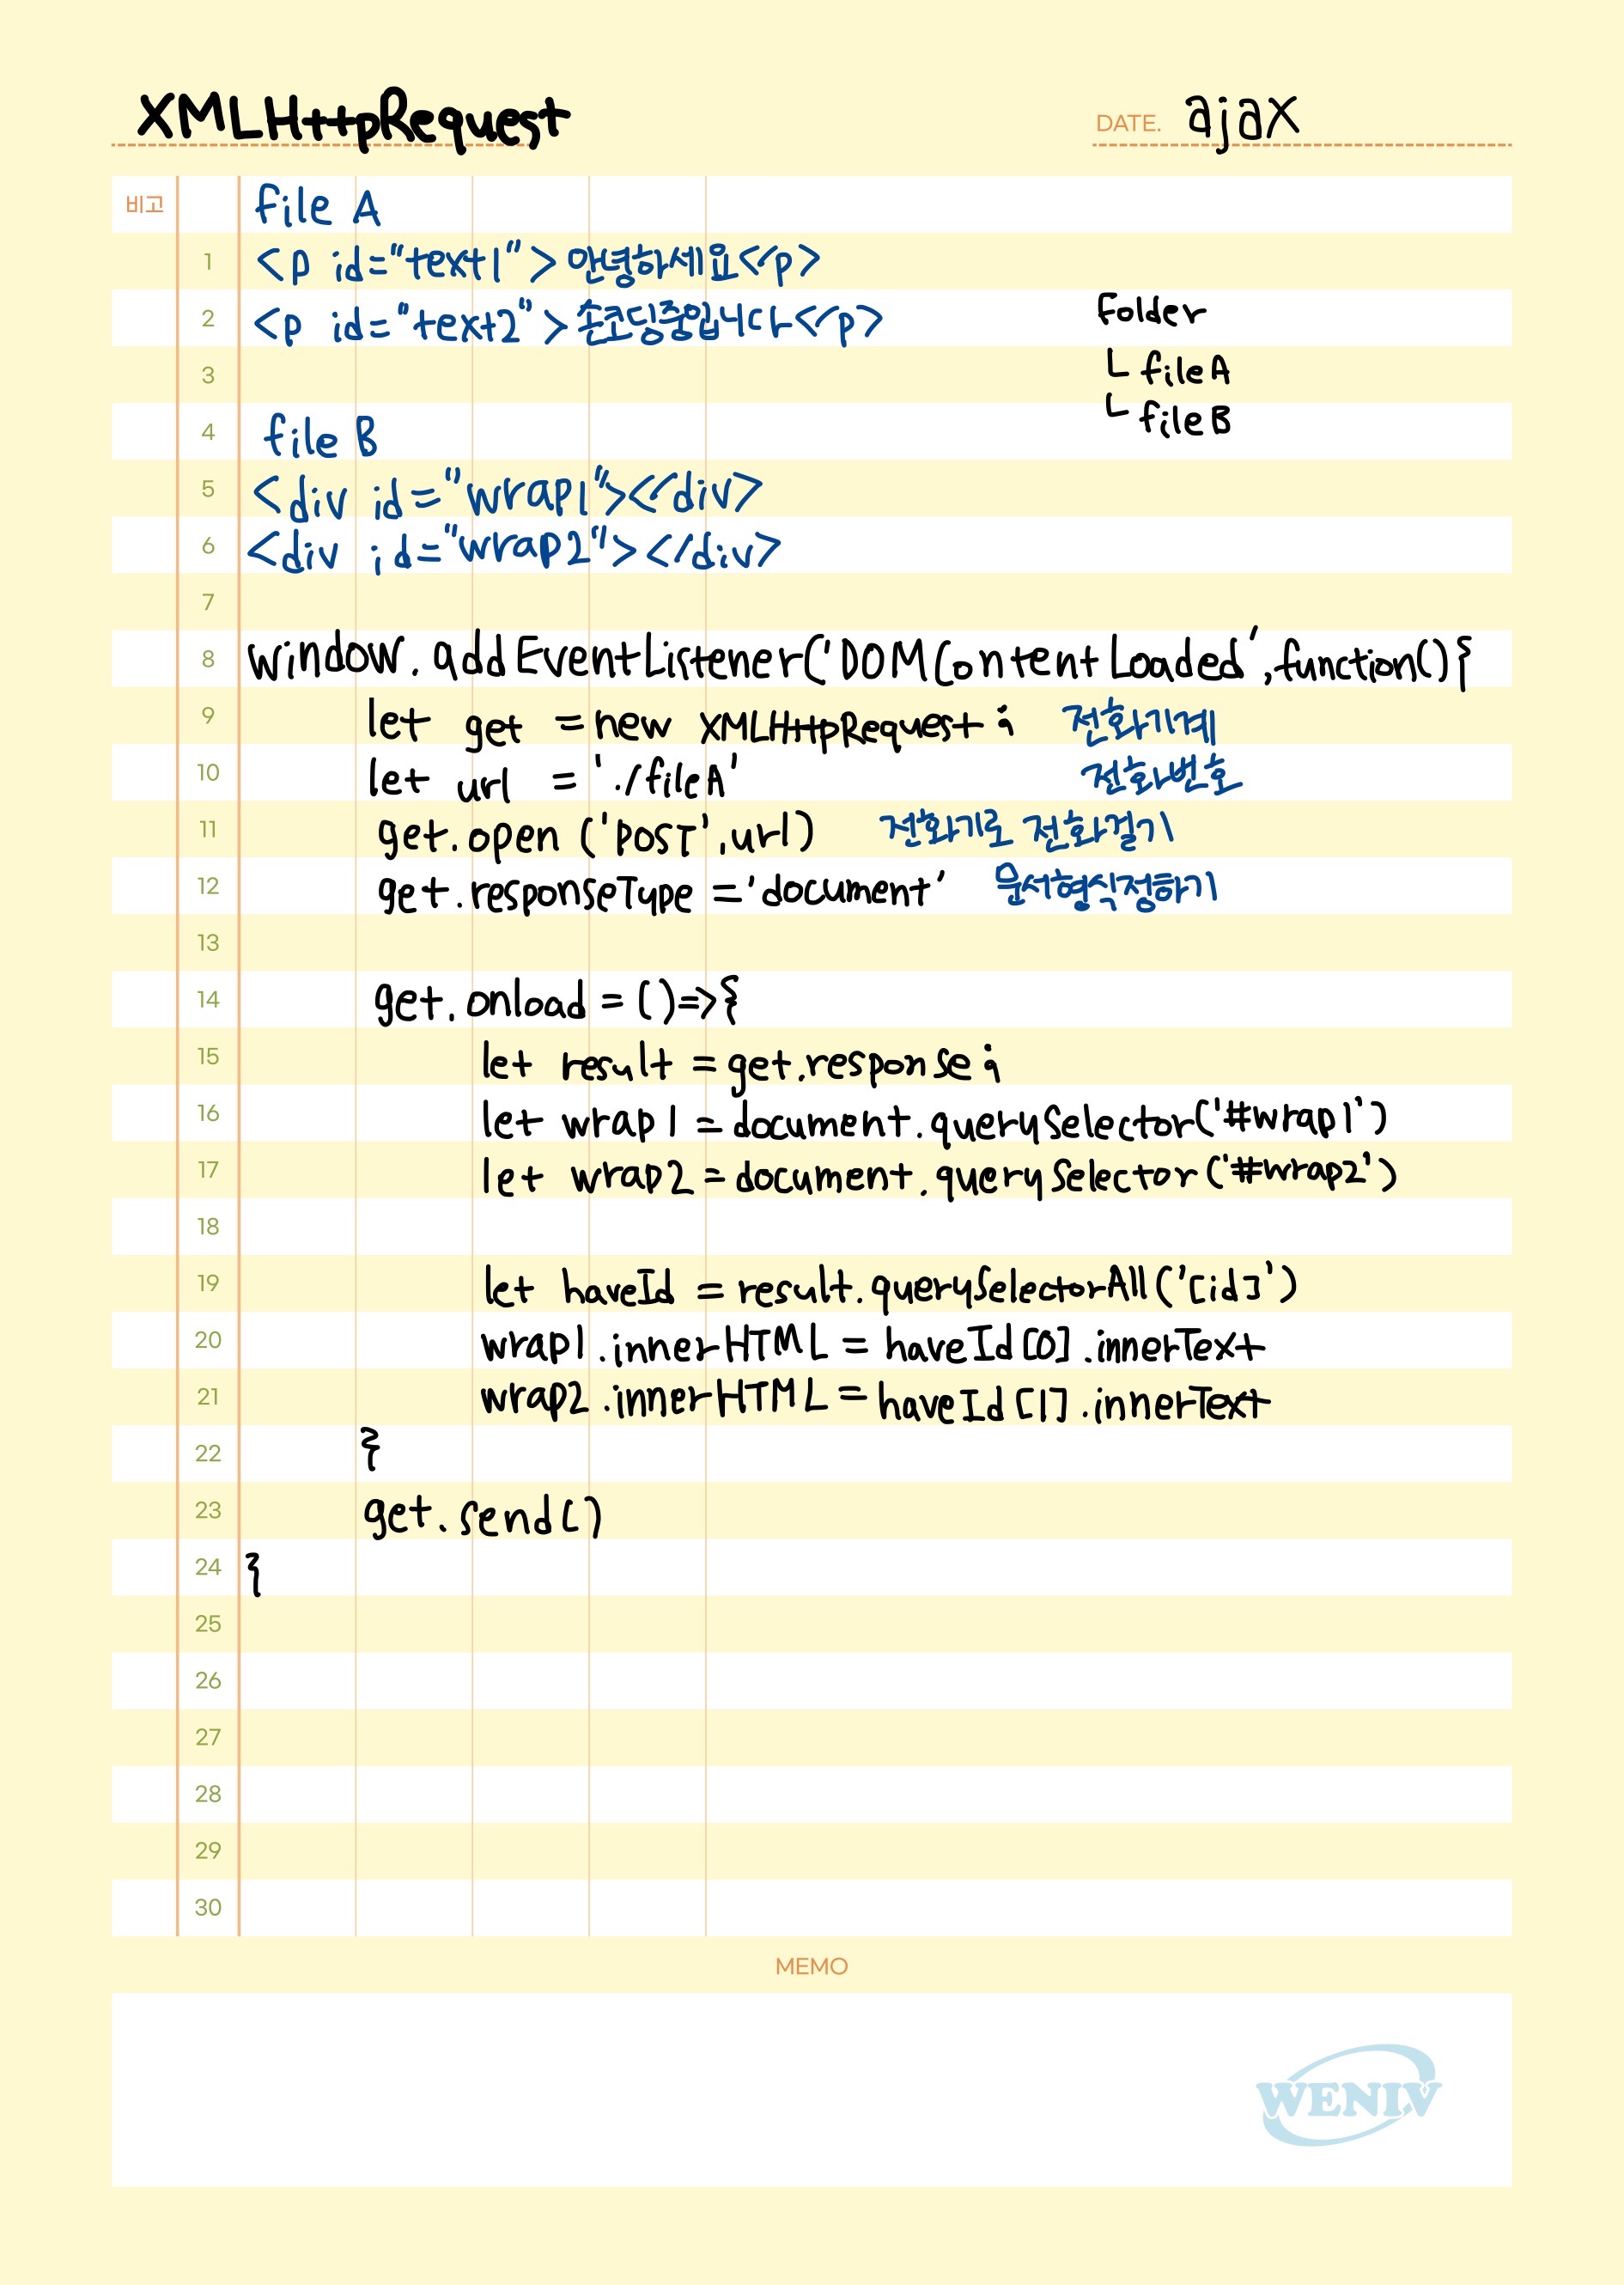 XMLHttpRequest
DATE. ajax
비고 file A
1 <p id="text1">안녕하세요</p>
2 <p id="text2">손코딩중입니다</p> Folder
3 └ fileA
4 file B └ fileB
5 <div id="wrap1"></div>
6 <div id="wrap2"></div>
7
8 window.addEventListener('DOMContentLoaded',function(){
9 let get = new XMLHttpRequest; 전화기계
10 let url = './fileA' 전화번호
11 get.open('POST',url) 전화기로 전화걸기
12 get.responseType='document' 문서형식정하기
13
14 get.onload=()=>{
15 let result = get.response;
16 let wrap1 = document.querySelector('#wrap1')
17 let wrap2 = document.querySelector('#wrap2')
18
19 let haveId = result.querySelectorAll('[id]')
20 wrap1.innerHTML = haveId[0].innerText
21 wrap2.innerHTML = haveId[1].innerText
22 }
23 get.send()
24 }
25
26
27
28
29
30
MEMO
WENIV